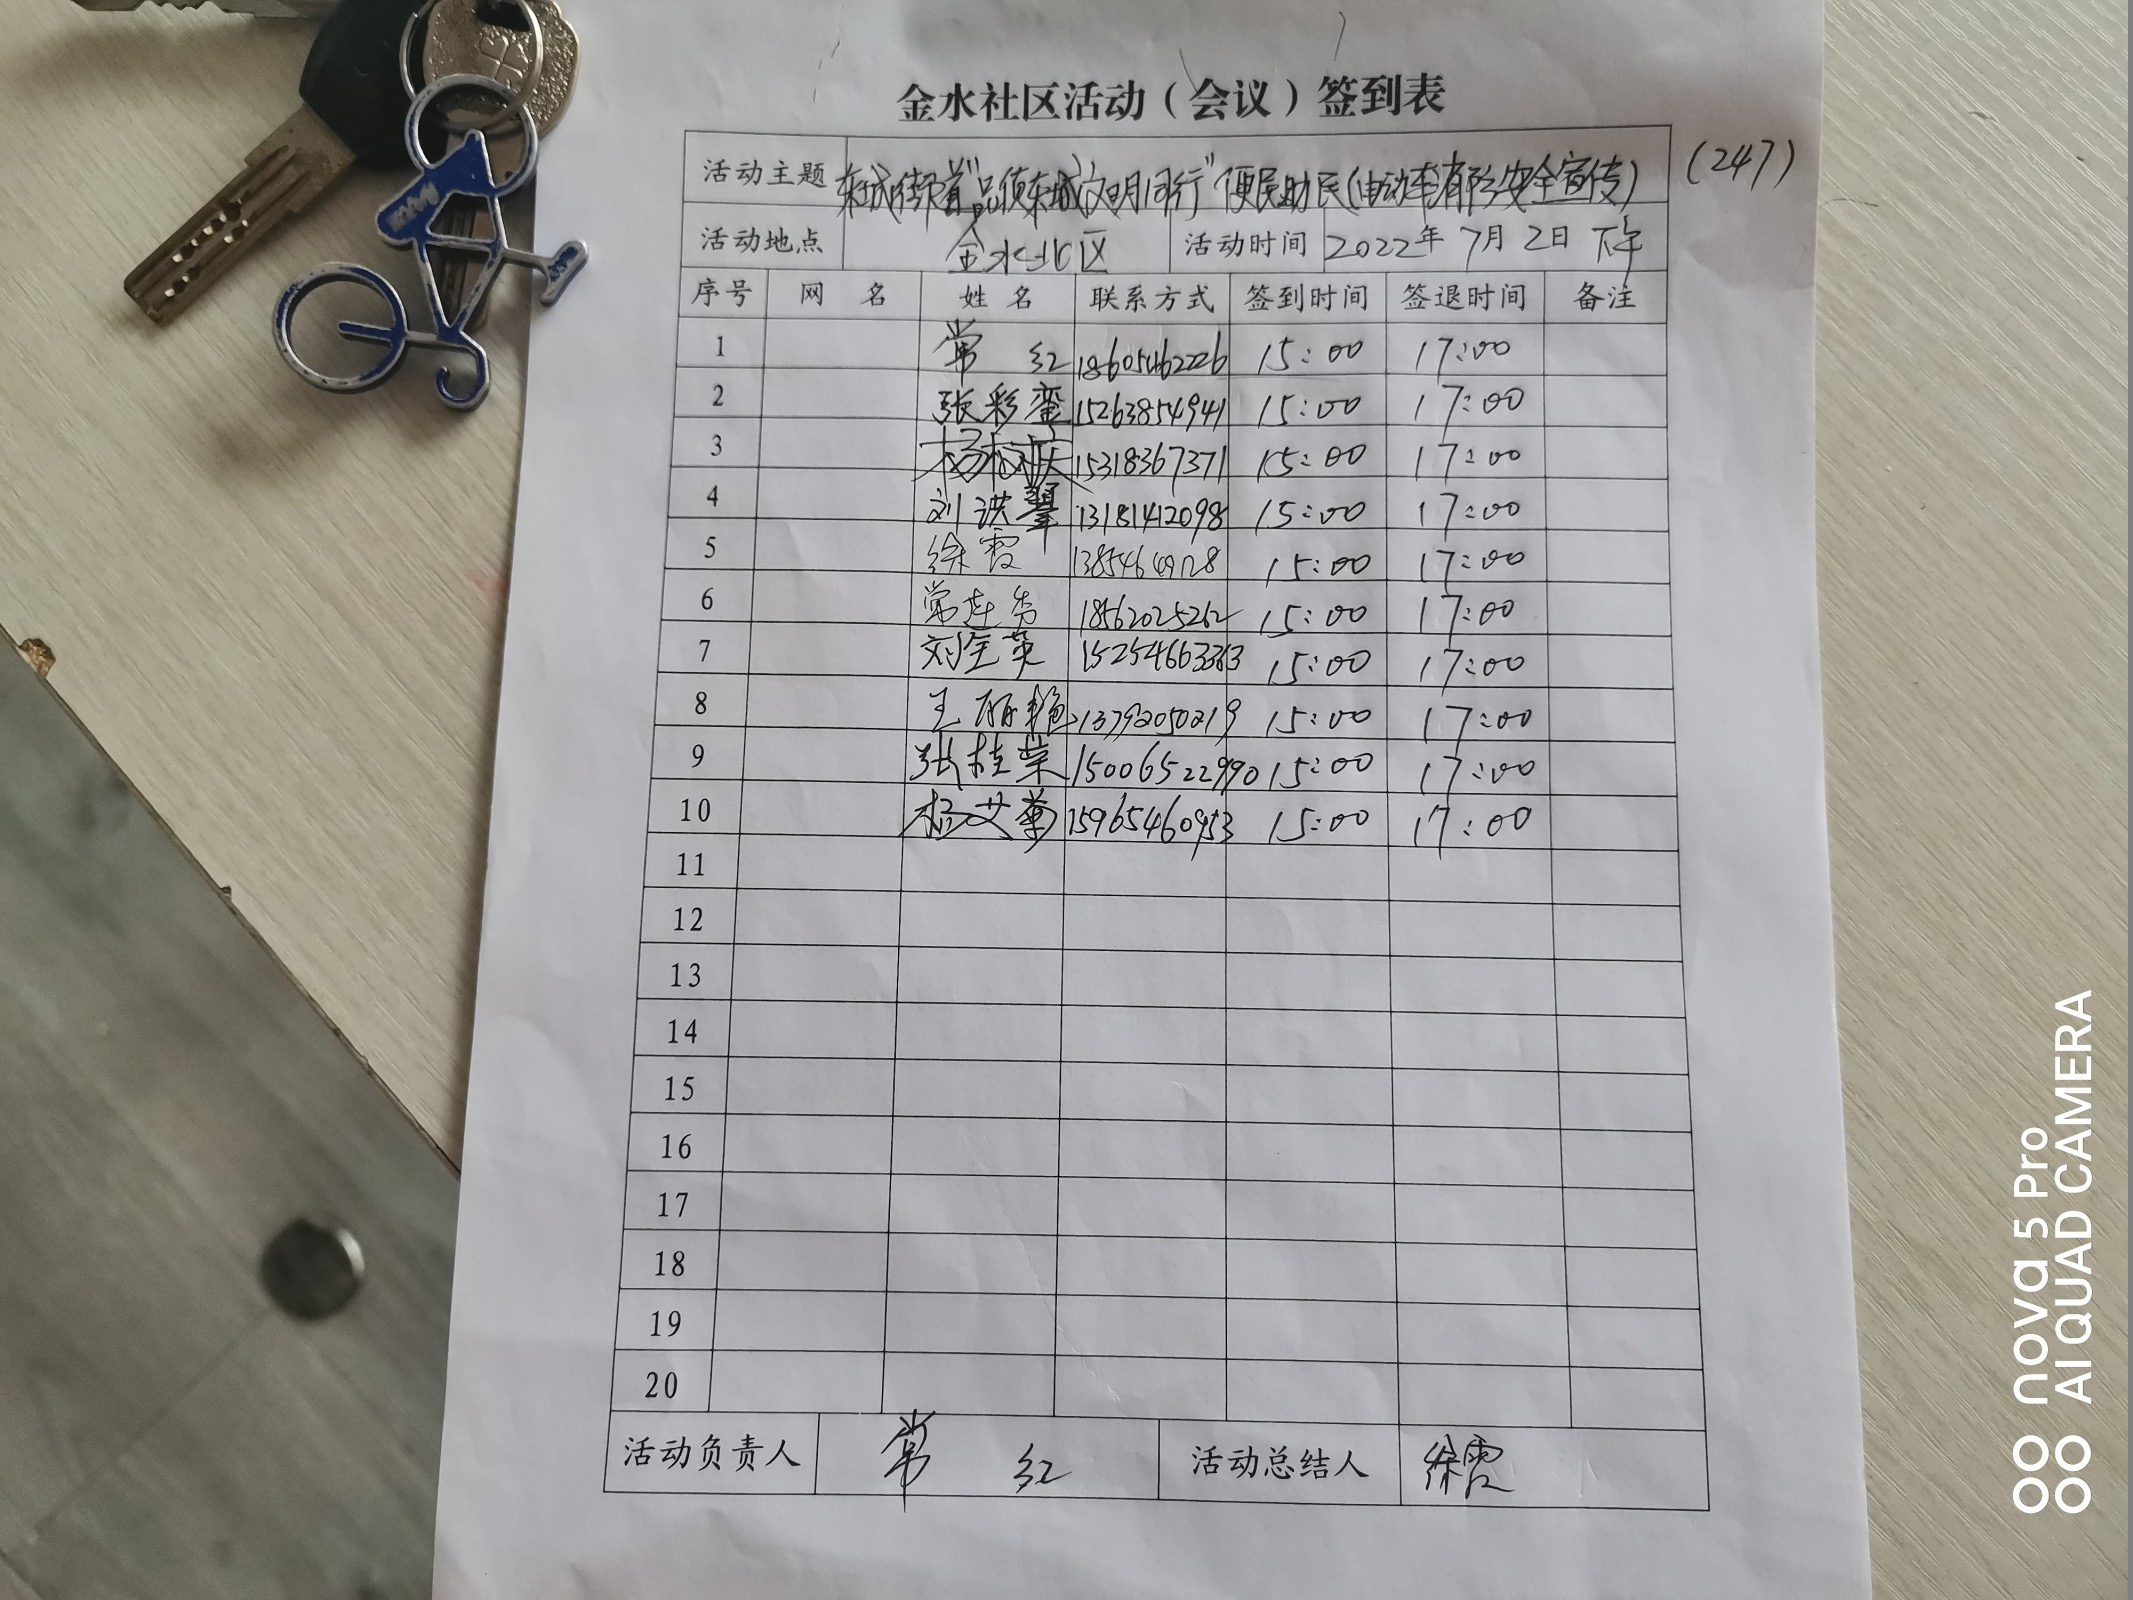 金水社区活动（会议）签到表
(247)
活动主题 东城街道"品质东城 文明同行"便民助民(电动车消防安全宣传)
活动地点 金水北区 活动时间 2022年7月2日下午
序号 网 名 姓 名 联系方式 签到时间 签退时间 备注
1 常 红 18605462226 15:00 17:00
2 张彩銮 15263854941 15:00 17:00
3 15318367371 15:00 17:00
4 刘洪翠 13181412098 15:00 17:00
5 徐霞 15:00 17:00
6 常连秀 18562025262 15:00 17:00
7 刘全英 15:00 17:00
8 王丽艳 13792050219 15:00 17:00
9 张桂荣 15006522990 15:00 17:00
10 杨艾菊 15965460953 15:00 17:00
11
12
13
14
15
16
17
18
19
20
活动负责人 常 红 活动总结人 徐霞
nova 5 Pro
AI QUAD CAMERA